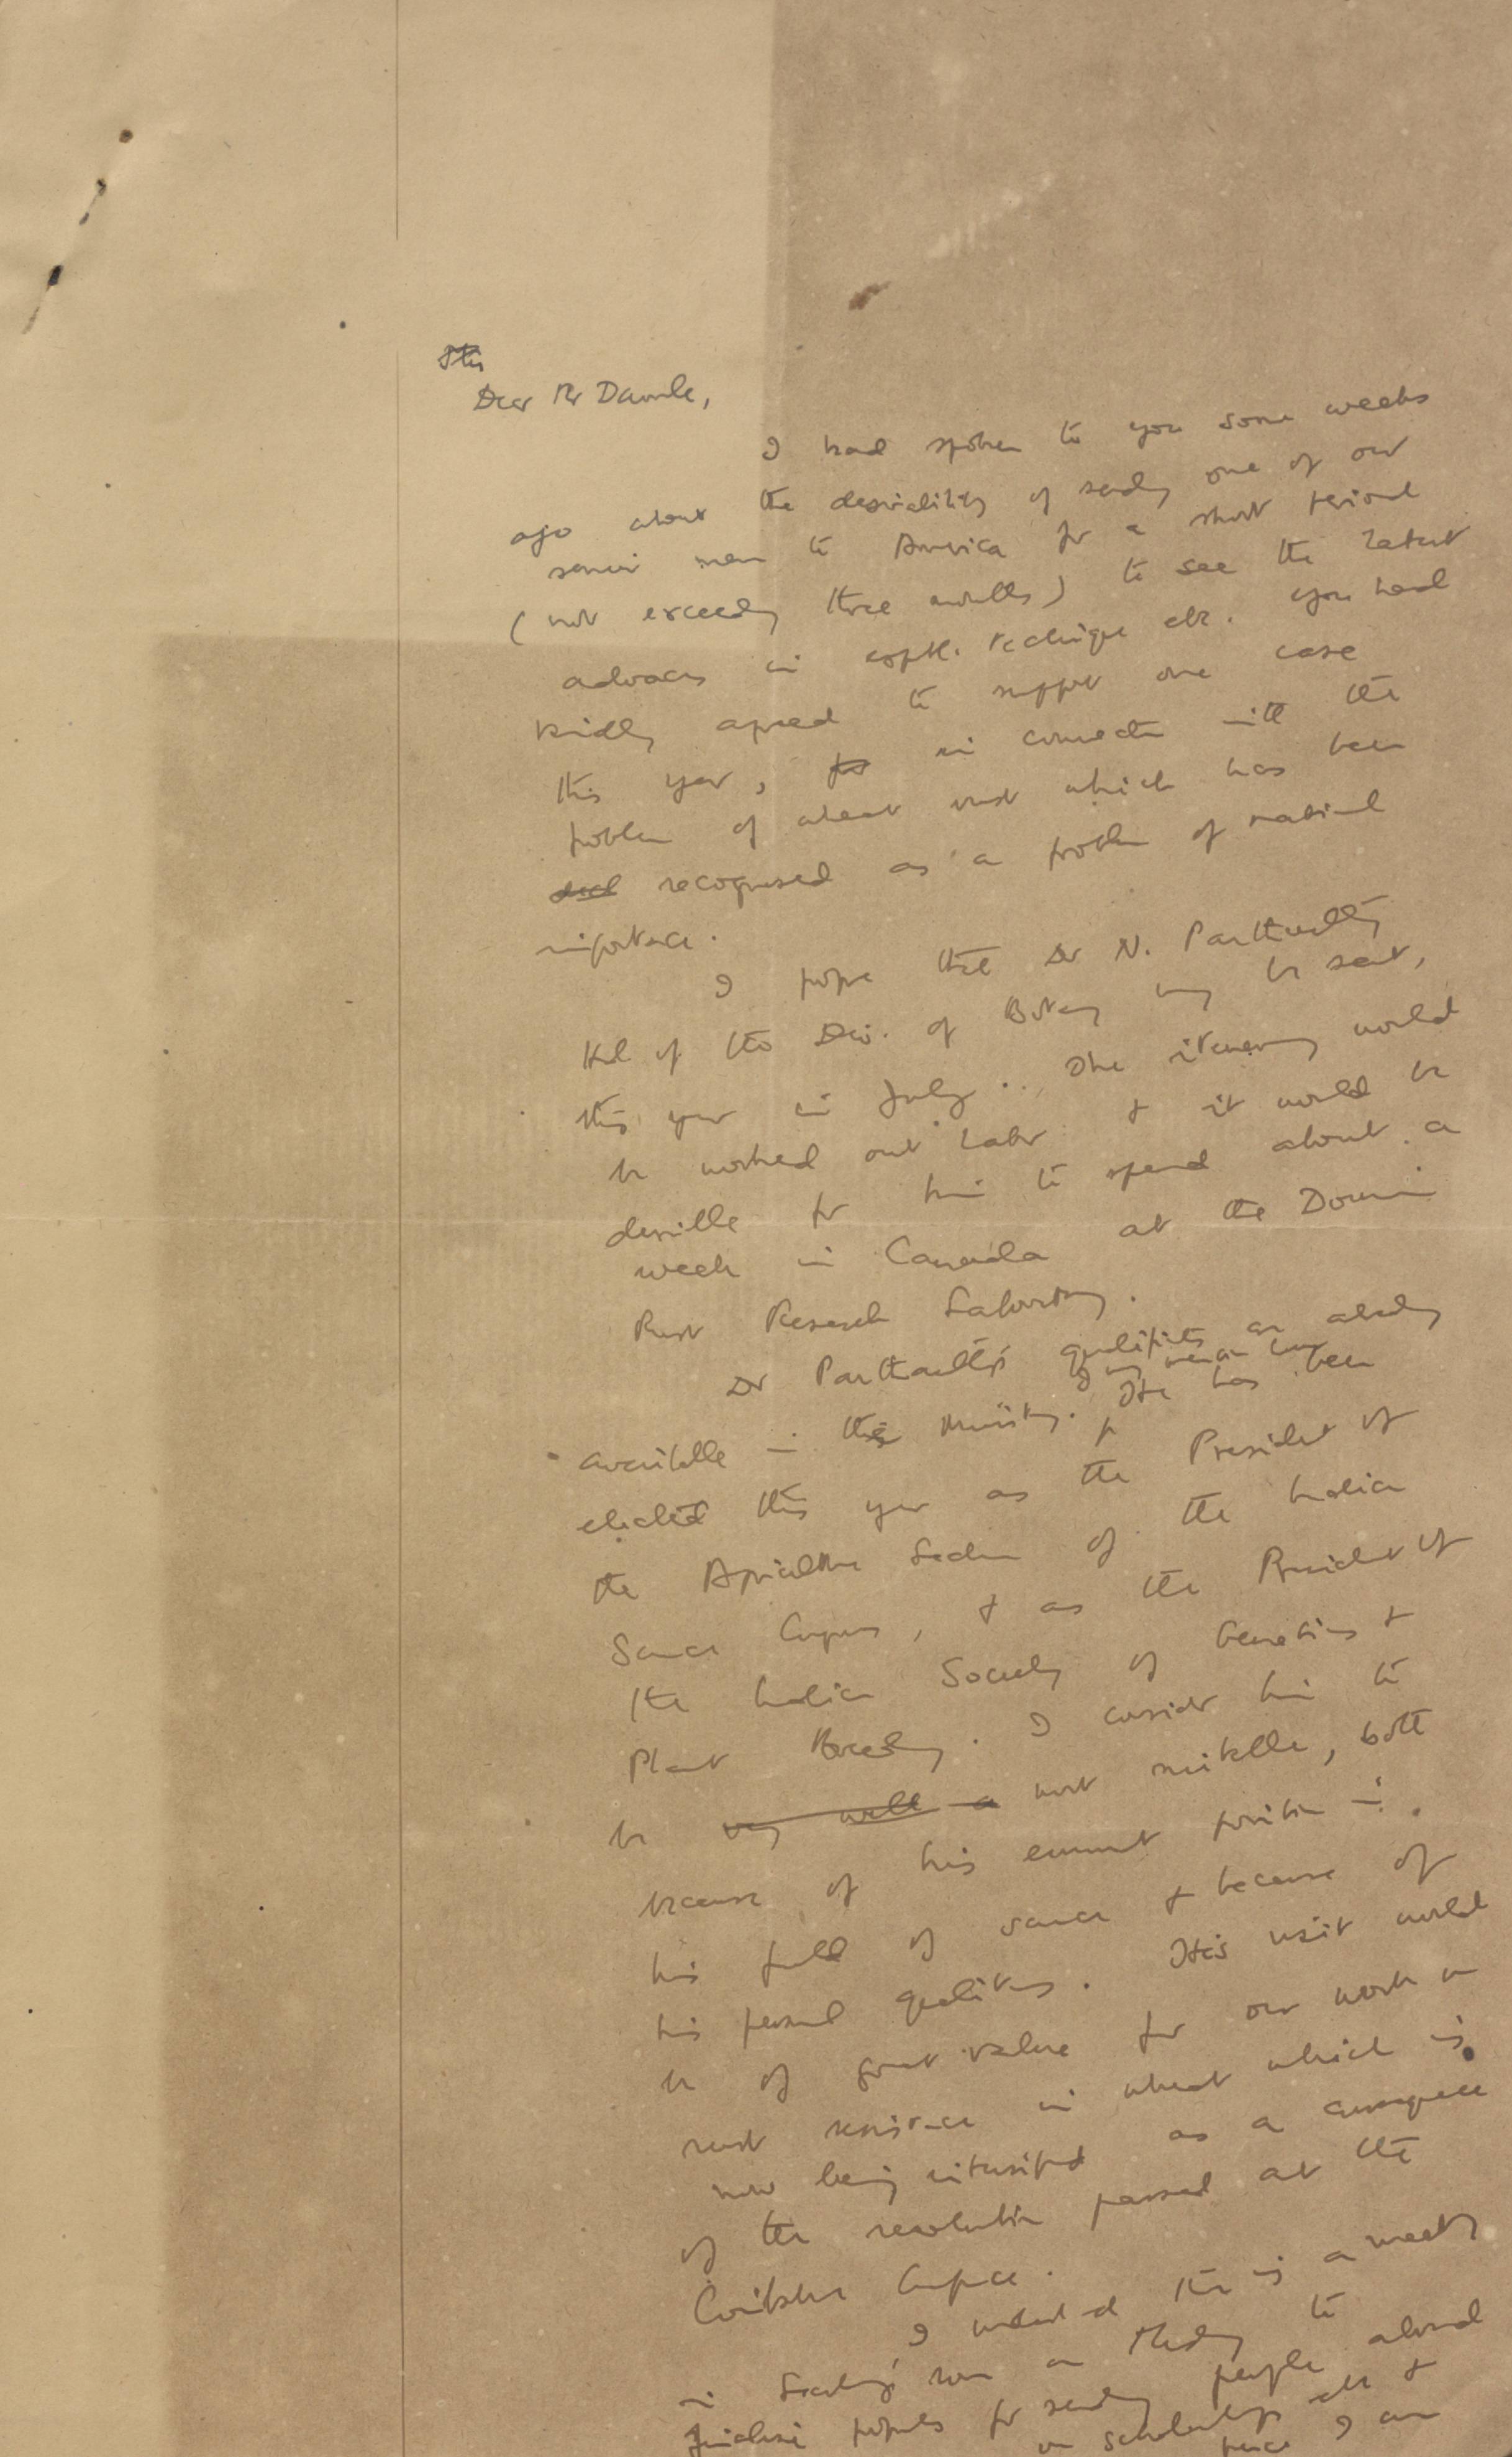 Dear Mr Damle,
I had spoken to you some weeks
ago about the desirability of sending one of our
senior men to America for a short period
(not exceeding three months) to see the latest
advances in exptl. technique etc. You had
kindly agreed to support one case
this year, for in connection with the
problem of wheat rust which has been
recognised as a problem of national
importance.
I propose that Dr N. Parthasarathy
Head of the Div. of Botany may be sent,
this year in July. The itinerary would
be worked out later & it would be
desirable for him to spend about a
week in Canada at the Dominion
Rust Research Laboratory.
Dr Parthasarathy's qualifications are already
I may mention here
available in the Ministry. He has been
elected this year as the President of
the Agriculture Section of the Indian
Science Congress, & as the President of
the Indian Society of Genetics &
Plant Breeding. I consider him to
be very well a most suitable, both
because of his eminent position in
his field of science & because of
his personal qualities. His visit would
be of great value for our work on
rust resistance in wheat which is
now being intensified as a consequence
of the resolution passed at the
Coimbatore Conference.
I understand there is a meeting
in Secretary's room on Monday to
finalise proposals for sending people abroad
on scholarships etc &
hence I am